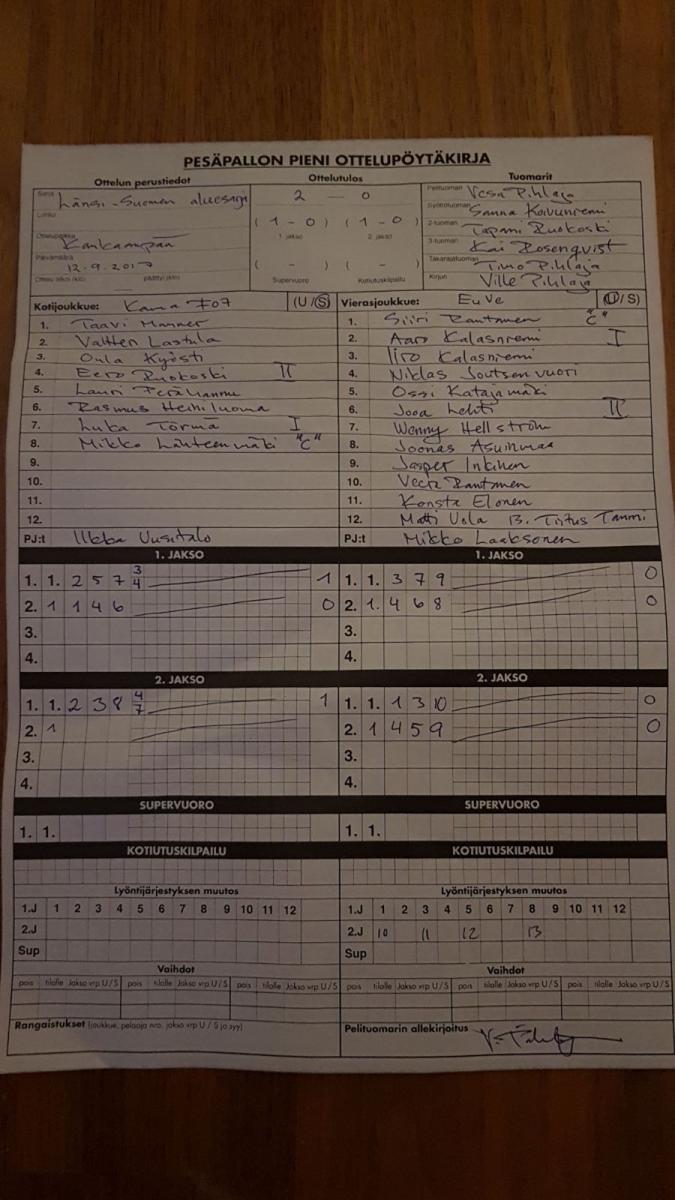 PESÄPALLON PIENI OTTELUPÖYTÄKIRJA
Ottelun perustiedot Ottelutulos Tuomarit
Sarja Länsi-Suomen aluesarja 2 – 0 Pelituomari Vesa Pihlaja
Lohko (1 – 0) (1 – 0) Syöttötuomari Sanna Koivuniemi
Ottelupaikka Kankaanpää 1. jakso 2. jakso 2-tuomari Tapani Ruokoski
Päivämäärä 12.9.2017 ( – ) ( – ) 3-tuomari Kai Rosenqvist
Takarajatuomari Timo Pihlaja
Ottelu alkoi (klo) päättyi (klo) Supervuoro Kotiutuskilpailu Kirjuri Ville Pihlaja
Kotijoukkue: Kama F07 (U /S) Vierasjoukkue: EuVe (U/ S)
1. Taavi Manner 1. Siiri Rantanen "C"
2. Valtteri Lastula 2. Aaro Kalasniemi I
3. Onla Kyösti 3. Iiro Kalasniemi
4. Eero Ruokoski II 4. Niklas Joutsenvuori
5. Lauri Perähannu 5. Ossi Katajamäki
6. Rasmus Heiniluoma 6. Jooa Lehti II
7. Luka Törmä I 7. Wenny Hellström
8. Mikko Lähteenmäki "C" 8. Joonas Asuinmaa
9. 9. Jasper Inkinen
10. 10. Veera Rantanen
11. 11. Konsta Elonen
12. 12. Matti Uola 13. Tiitus Tammi
PJ:t Ilkka Uusitalo PJ:t Mikko Laaksonen
1. JAKSO 1. JAKSO
1. 1. 2 5 7 3/4 1 1. 1. 3 7 9 0
2. 1 1 4 6 0 2. 1. 4 6 8 0
3. 3.
4. 4.
2. JAKSO 2. JAKSO
1. 1. 2 3 8 4/7 1 1. 1. 1 3 10 0
2. 1 2. 1 4 5 9 0
3. 3.
4. 4.
SUPERVUORO SUPERVUORO
1. 1. 1. 1.
KOTIUTUSKILPAILU KOTIUTUSKILPAILU
Lyöntijärjestyksen muutos Lyöntijärjestyksen muutos
1.J 1 2 3 4 5 6 7 8 9 10 11 12 1.J 1 2 3 4 5 6 7 8 9 10 11 12
2.J 2.J 10 11 12 13
Sup Sup
Vaihdot Vaihdot
pois tilalle Jakso vrp U / S pois tilalle Jakso vrp U / S pois tilalle Jakso vrp U / S pois tilalle Jakso vrp U / S pois tilalle Jakso vrp U / S pois tilalle Jakso vrp U / S
Rangaistukset (joukkue, pelaaja nro, jakso vrp U / S ja syy) Pelituomarin allekirjoitus